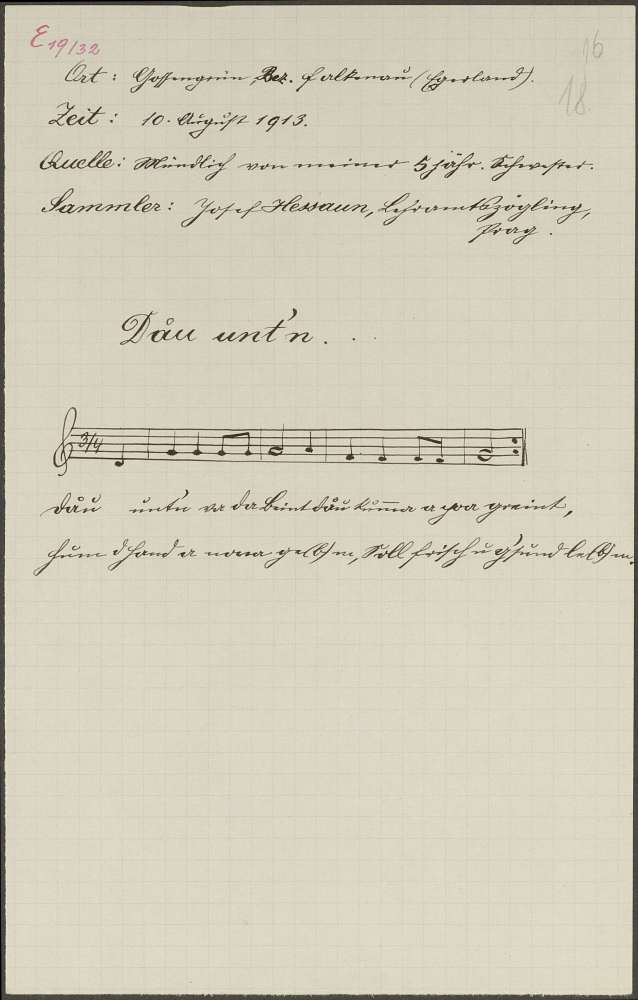 E 19/32
16
18.
Ort: Gossengrün, Bez. Falkenau (Egerland).
Zeit: 10. August 1913.
Quelle: Mündlich von meiner 5 jähr. Schwester.
Sammler: Josef Hessaun, Lehramtszögling,
Prag.
Dåu unt'n...
3/4
Dåu unt'n va da Beint dåu kumma a poa greint,
hum d'Hand a nova ge(b)m, Soll frisch u g'sund le(b)m.